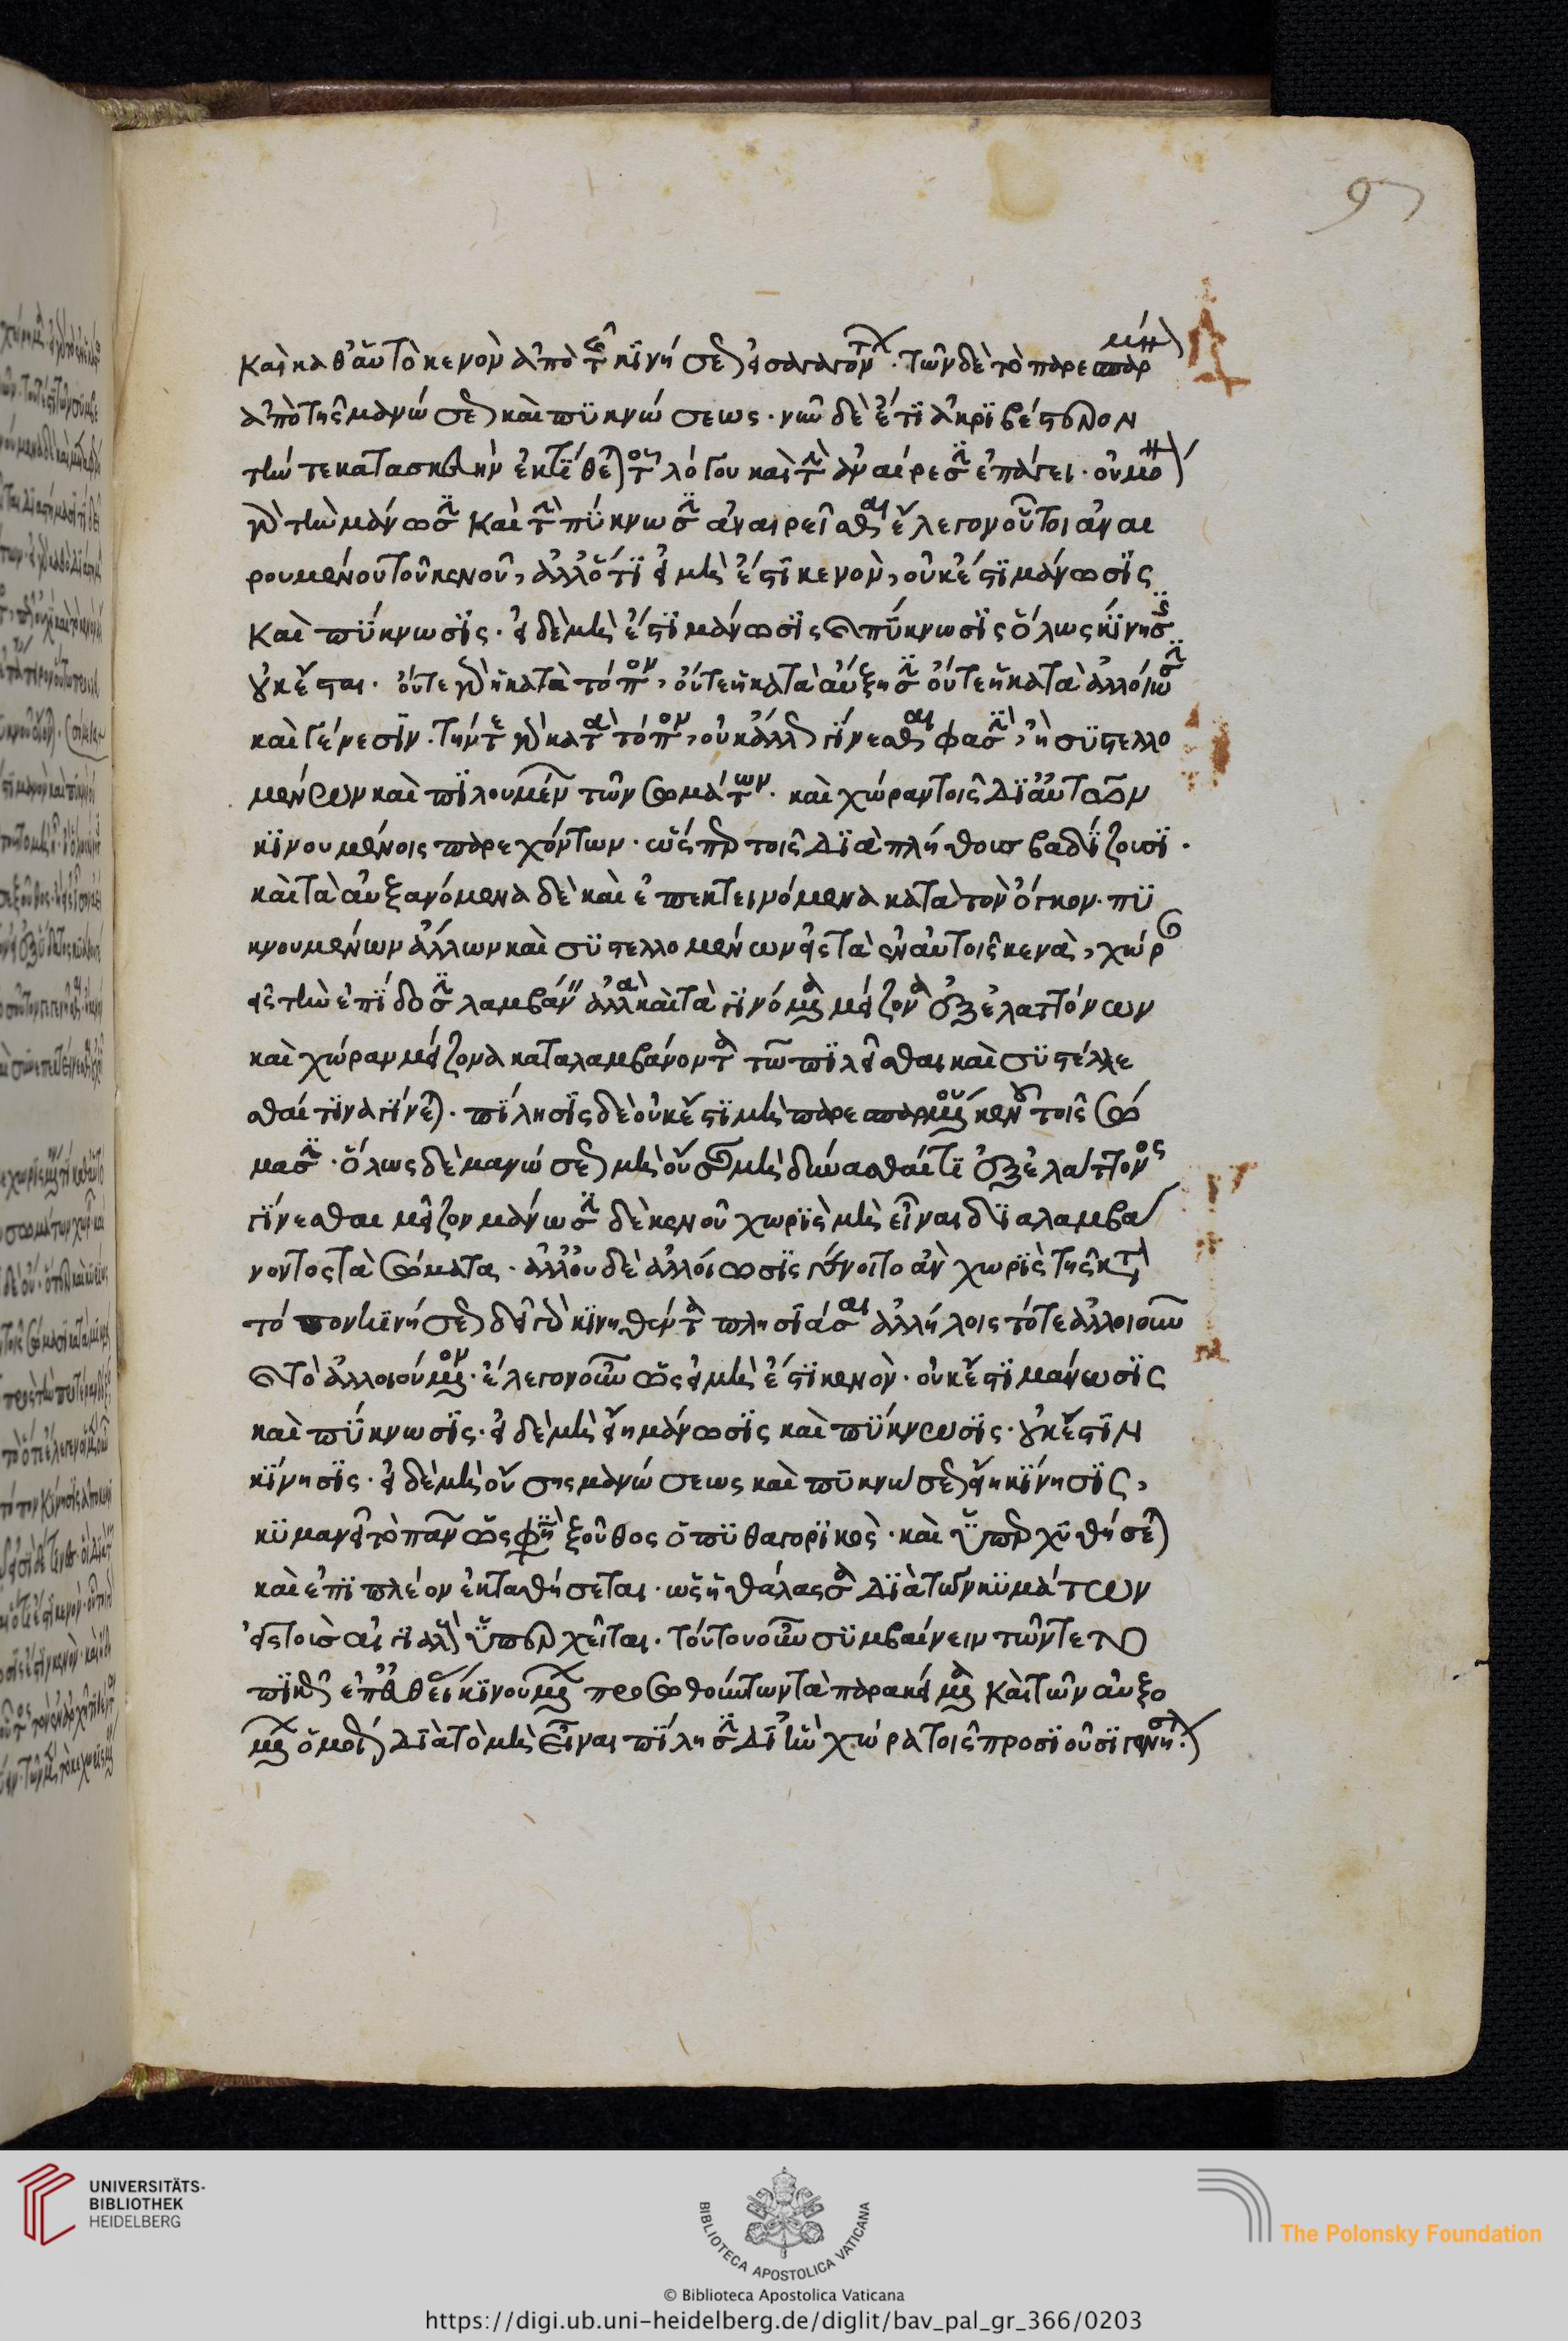 97
καὶ καθ' αὑτὸ κενὸν ἀπὸ τῆς κινήσεως εἰσαγαγόντων. τῶν δὲ τὸ παρεσπαρμένον
ἀπὸ τῆς μανώσεως καὶ πυκνώσεως. νῦν δὲ ἔτι ἀκριβέστερον
τήν τε κατασκευὴν ἐκτίθεται τοῦ λόγου καὶ τὴν ἀναίρεσιν ἐπάγει. οὐ μόνον
γὰρ τὴν μάνωσιν καὶ τὴν πύκνωσιν ἀναιρεῖσθαι ἔλεγον οὗτοι ἀναι
ρουμένου τοῦ κενοῦ, ἀλλ' ὅτι εἰ μὴ ἔστι κενὸν, οὐκ ἔστι μάνωσις
καὶ πύκνωσις. εἰ δὲ μὴ ἔστι μάνωσις καὶ πύκνωσις ὅλως κίνησις
οὐκ ἔσται. οὔτε γὰρ ἡ κατὰ τόπον, οὔτε ἡ κατὰ αὔξησιν οὔτε ἡ κατὰ ἀλλοίωσιν
καὶ γένεσιν. τήν τε γὰρ κατὰ τόπον, οὐκ ἄλλως γίνεσθαι φασὶν, ἢ συστελλο
μένων καὶ πιλουμένων τῶν σωμάτων. καὶ χώραν τοῖς δι' αὐτῶν
κινουμένοις παρεχόντων. ὥσπερ τοῖς διὰ πλήθους βαδίζουσι.
καὶ τὰ αὐξανόμενα δὲ καὶ ἐπεκτεινόμενα κατὰ τὸν ὄγκον. πυ
κνουμένων ἄλλων καὶ συστελλομένων εἰς τὰ ἐν αὐτοῖς κενὰ, χώραν
εἰς τὴν ἐπίδοσιν λαμβάνειν ἀλλὰ καὶ τὰ γινόμενα μείζονα ἐξ ἐλαττόνων
καὶ χώραν μείζονα καταλαμβάνοντα τῶ πιλεῖσθαι καὶ συστέλλε
σθαί τινα γίνεται. πίλησις δὲ οὐκ ἔστι μὴ παρεσπαρμένου κενοῦ τοῖς σώ
μασιν. ὅλως δὲ μανώσεως μὴ οὔσης μὴ δύνασθαί τι ἐξ ἐλάττονος
γίνεσθαι μεῖζον μάνωσιν δὲ κενοῦ χωρὶς μὴ εἶναι διαλαμβά
νοντος τὰ σώματα. ἀλλ' οὐδὲ ἀλλοίωσις γένοιτο ἂν χωρὶς τῆς κατὰ
τόπον κινήσεως δεῖ γὰρ κινηθέντα πλησιάσαι ἀλλήλοις τό τε ἀλλοιοῦν
καὶ τὸ ἀλλοιούμενον. ἔλεγον οὖν ὡς εἰ μὴ ἔστι κενὸν. οὐκ ἔστι μάνωσις
καὶ πύκνωσις. εἰ δὲ μὴ εἴη μάνωσις καὶ πύκνωσις. οὐκ ἔστιν
κίνησις. εἰ δὲ μὴ οὔσης μανώσεως καὶ πυκνώσεως εἴη κίνησις,
κυμανεῖ τὸ πᾶν ὥς φησὶν ξοῦθος ὁ πυθαγορικὸς. καὶ ὑπερχυθήσεται
καὶ ἐπὶ πλέον ἐκταθήσεται. ὡς ἡ θάλασσα διὰ τῶν κυμάτων
εἰς τοὺς αἰγιαλοὺς ὑπερχεῖται. τοῦτον οὖν συμβαίνειν τῶν τε το
πικῶς ἐπ' εὐθείας κινουμένων προωθούντων τὰ παρακείμενα καὶ τῶν αὐξο
μένων ὁμοίως διὰ τὸ μὴ εἶναι πίλησιν δι' ἣν χώρα τοῖς προσιοῦσι γενήσεται.
UNIVERSITÄTS-
BIBLIOTHEK
HEIDELBERG
BIBLIOTECA APOSTOLICA VATICANA
The Polonsky Foundation
© Biblioteca Apostolica Vaticana
https://digi.ub.uni-heidelberg.de/diglit/bav_pal_gr_366/0203